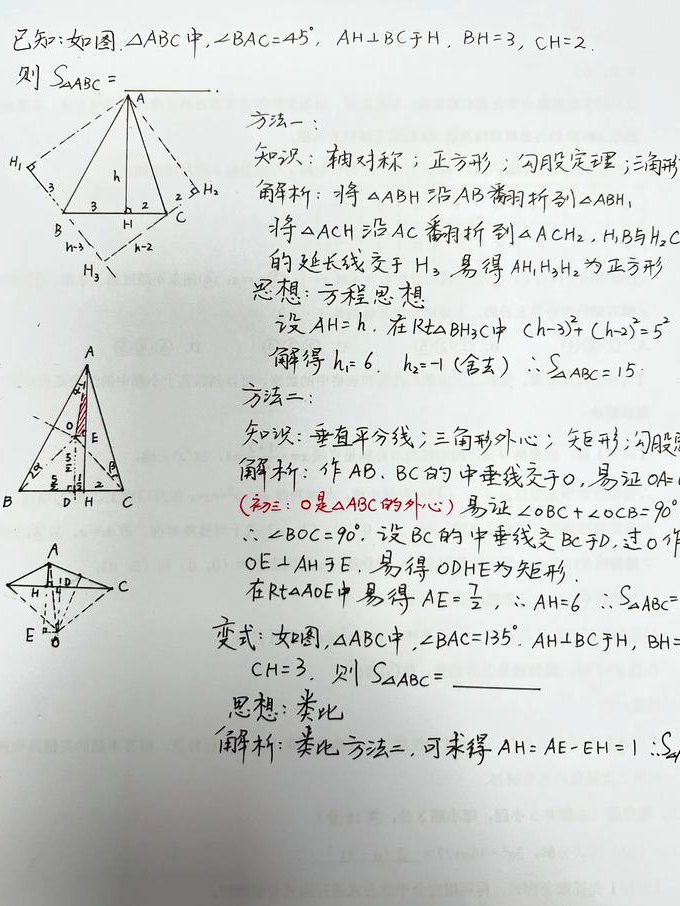 已知:如图,△ABC中,∠BAC=45°, AH⊥BC于H, BH=3, CH=2.
则 S△ABC = ________.
A
H₁
h
H₂
3
3
2
2
B
H
C
h-3
h-2
H₃
方法一:
知识: 轴对称; 正方形; 勾股定理; 三角形
解析: 将△ABH沿AB翻折到△ABH₁
将△ACH沿AC翻折到△ACH₂, H₁B与H₂C
的延长线交于H₃, 易得AH₁H₃H₂为正方形
思想: 方程思想
设AH=h, 在Rt△BH₃C中 (h-3)²+(h-2)²=5²
解得 h₁=6, h₂=-1(舍去) ∴S△ABC=15
方法二:
知识: 垂直平分线; 三角形外心; 矩形; 勾股
解析: 作AB、BC的中垂线交于O, 易证OA=
(初三: O是△ABC的外心) 易证∠OBC+∠OCB=90°
∴∠BOC=90°. 设BC的中垂线交BC于D, 过O作
OE⊥AH于E, 易得ODHE为矩形.
在Rt△AOE中易得AE=7/2, ∴AH=6 ∴S△ABC=
A
α
O
E
5/2
2α
β
5/2
1/2
2
B
D
H
C
A
H
1
D
C
4
E
O
变式: 如图,△ABC中,∠BAC=135°, AH⊥BC于H, BH=
CH=3, 则 S△ABC= ________
思想: 类比
解析: 类比方法二, 可求得AH=AE-EH=1 ∴S△